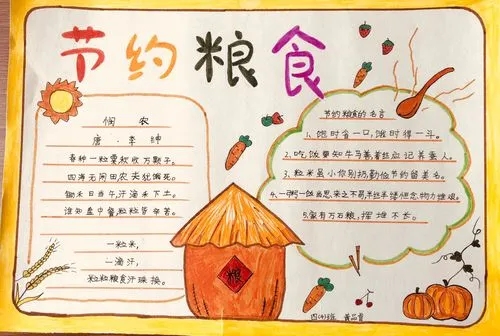 节约粮食
悯 农
唐·李绅
春种一粒粟秋收万颗子.
四海无闲田农夫犹饿死.
锄禾日当午,汗滴禾下土.
谁知盘中餐粒粒皆辛苦.
一粒米,
一滴汗,
粒粒粮食汗珠换.
节约粮食的名言
1、饱时省一口,饿时得一斗.
2、吃饭要知牛马善着丝应记养蚕人.
3、粒米虽小你别扔勤俭节约留美名.
4、一粥一饭当思来之不易半丝半缕恒念物力维艰.
5、家有万石粮,挥堆不长.
粮
四(4)班 黄品